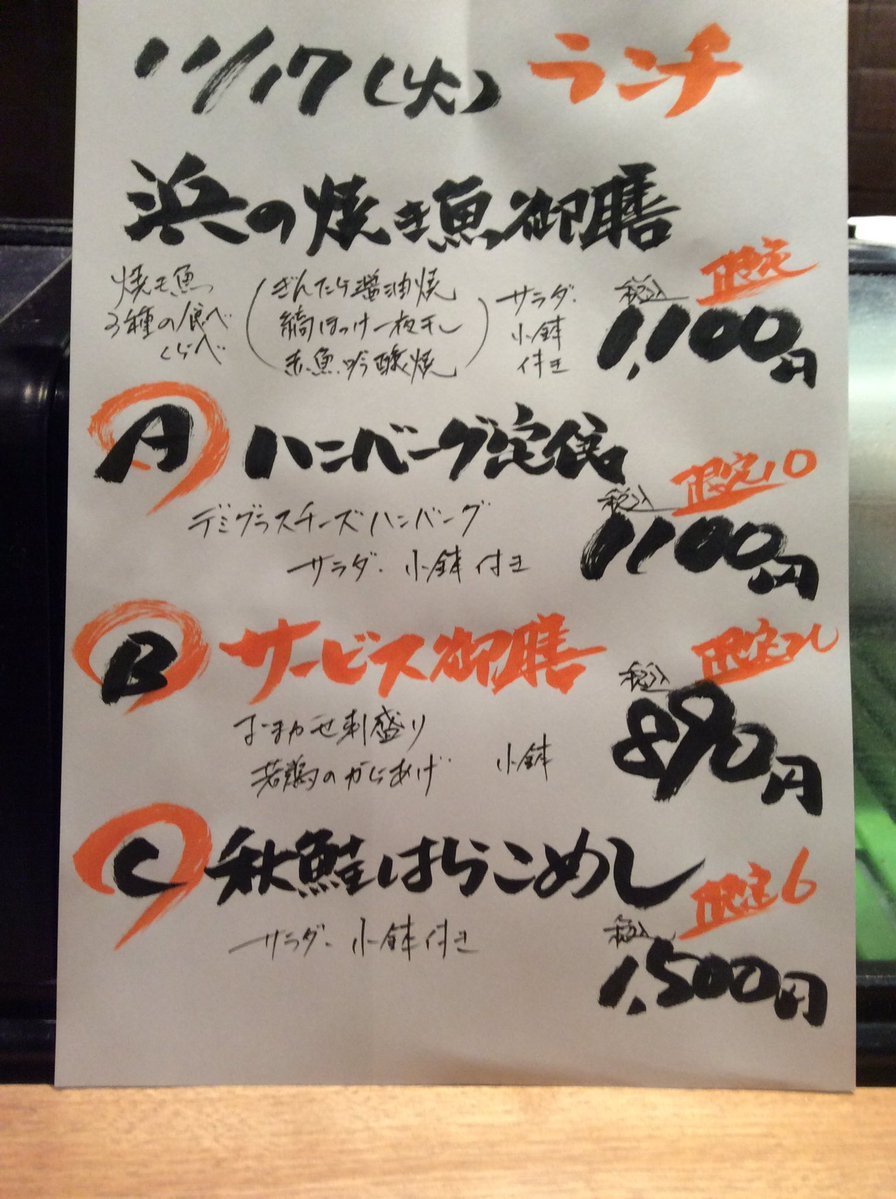 11/17(火) ランチ
浜の焼き魚御膳
限定
焼き魚
3種の食べ
くらべ
(ぎんだら醤油焼
縞ほっけ一夜干し
赤魚吟醸焼)
サラダ・
小鉢
付き
税込
1,100円
A ハンバーグ定食
限定10
デミグラスチーズハンバーグ
サラダ・小鉢付き
税込
1100円
B サービス御膳
限定
おまかせ刺盛り
若鶏のからあげ 小鉢
税込
890円
C 秋鮭はらこめし
限定6
サラダ・小鉢付き
税込
1,500円